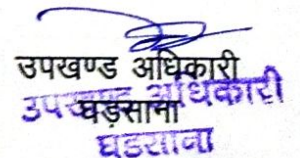 उपखण्ड अधिकारी
घड़साना
उपखण्ड अधिकारी
घडसाना